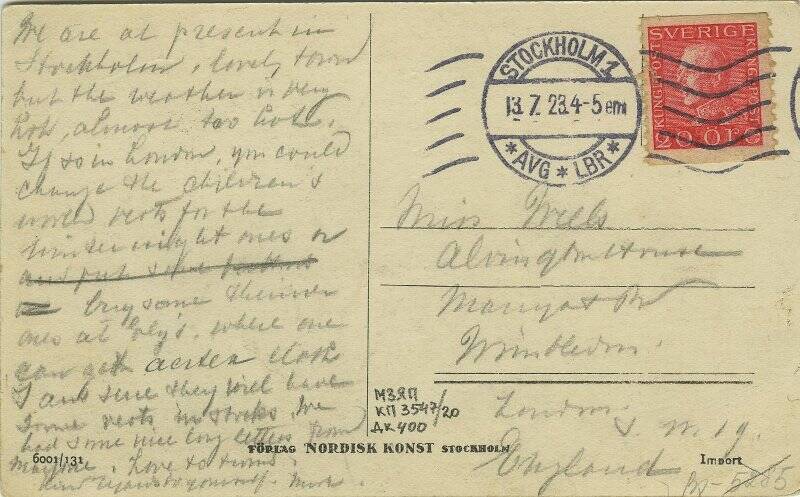 We are at present in
Stockholm, lovely town
but the weather is very
hot, almost too hot.
If so in London, you could
change the children's
vests for the
winter night ones or
and put some
buy some thinner
ones at Ely's, where one
can get aertex cloth
I am sure they will have
some vests in stocks. We
had some nice long letters from
Love to
yourself.
STOCKHOLM.1
13.7.23.4-5 em
*AVG*LBR*
SVERIGE
20 ÖRE
Miss Wells
Alvington House
Wimbledon
London
S.W.19.
England
МЗЯП
КП 3547/20
ДК 400
6001/131
FÖRLAG NORDISK KONST STOCKHOLM
Import